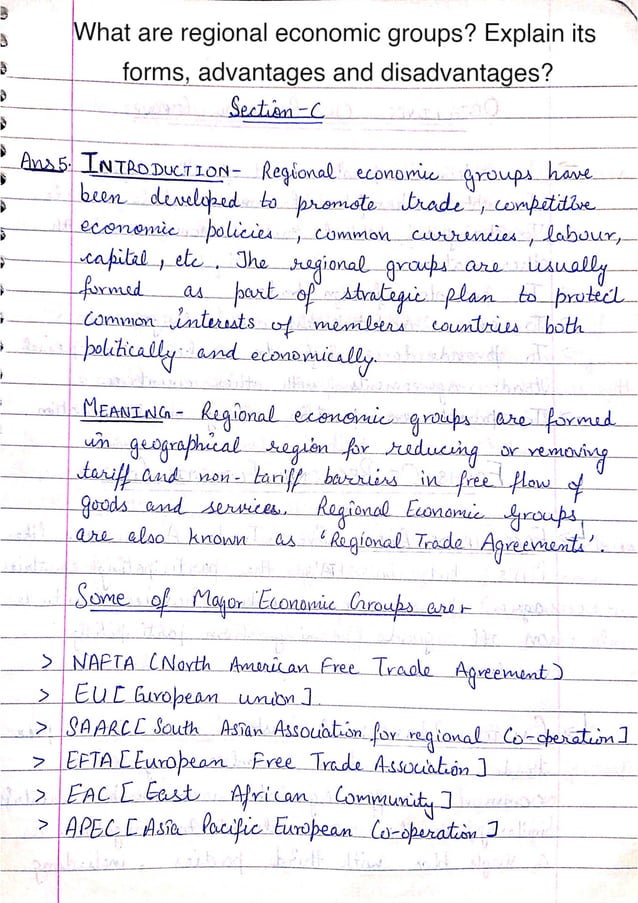 What are regional economic groups? Explain its
forms, advantages and disadvantages?
Section-C
Ans5. INTRODUCTION- Regional economic groups have
been developed to promote trade, competitive
economic policies, common currencies, labour,
capital, etc. The regional groups are usually
formed as part of strategic plan to protect
common interests of members countries both
politically and economically.
MEANING- Regional economic groups are formed
in geographical region for reducing or removing
tariff and non-tariff barriers in free flow of
goods and services. Regional Economic Groups
are also known as 'Regional Trade Agreements'.
Some of Major Economic Groups are:-
> NAFTA (North American Free Trade Agreement)
> EU [European union].
> SAARC [South Asian Association for regional Co-operation]
> EFTA [European Free Trade Association]
> EAC [East African Community]
> APEC [Asia Pacific European Co-operation]